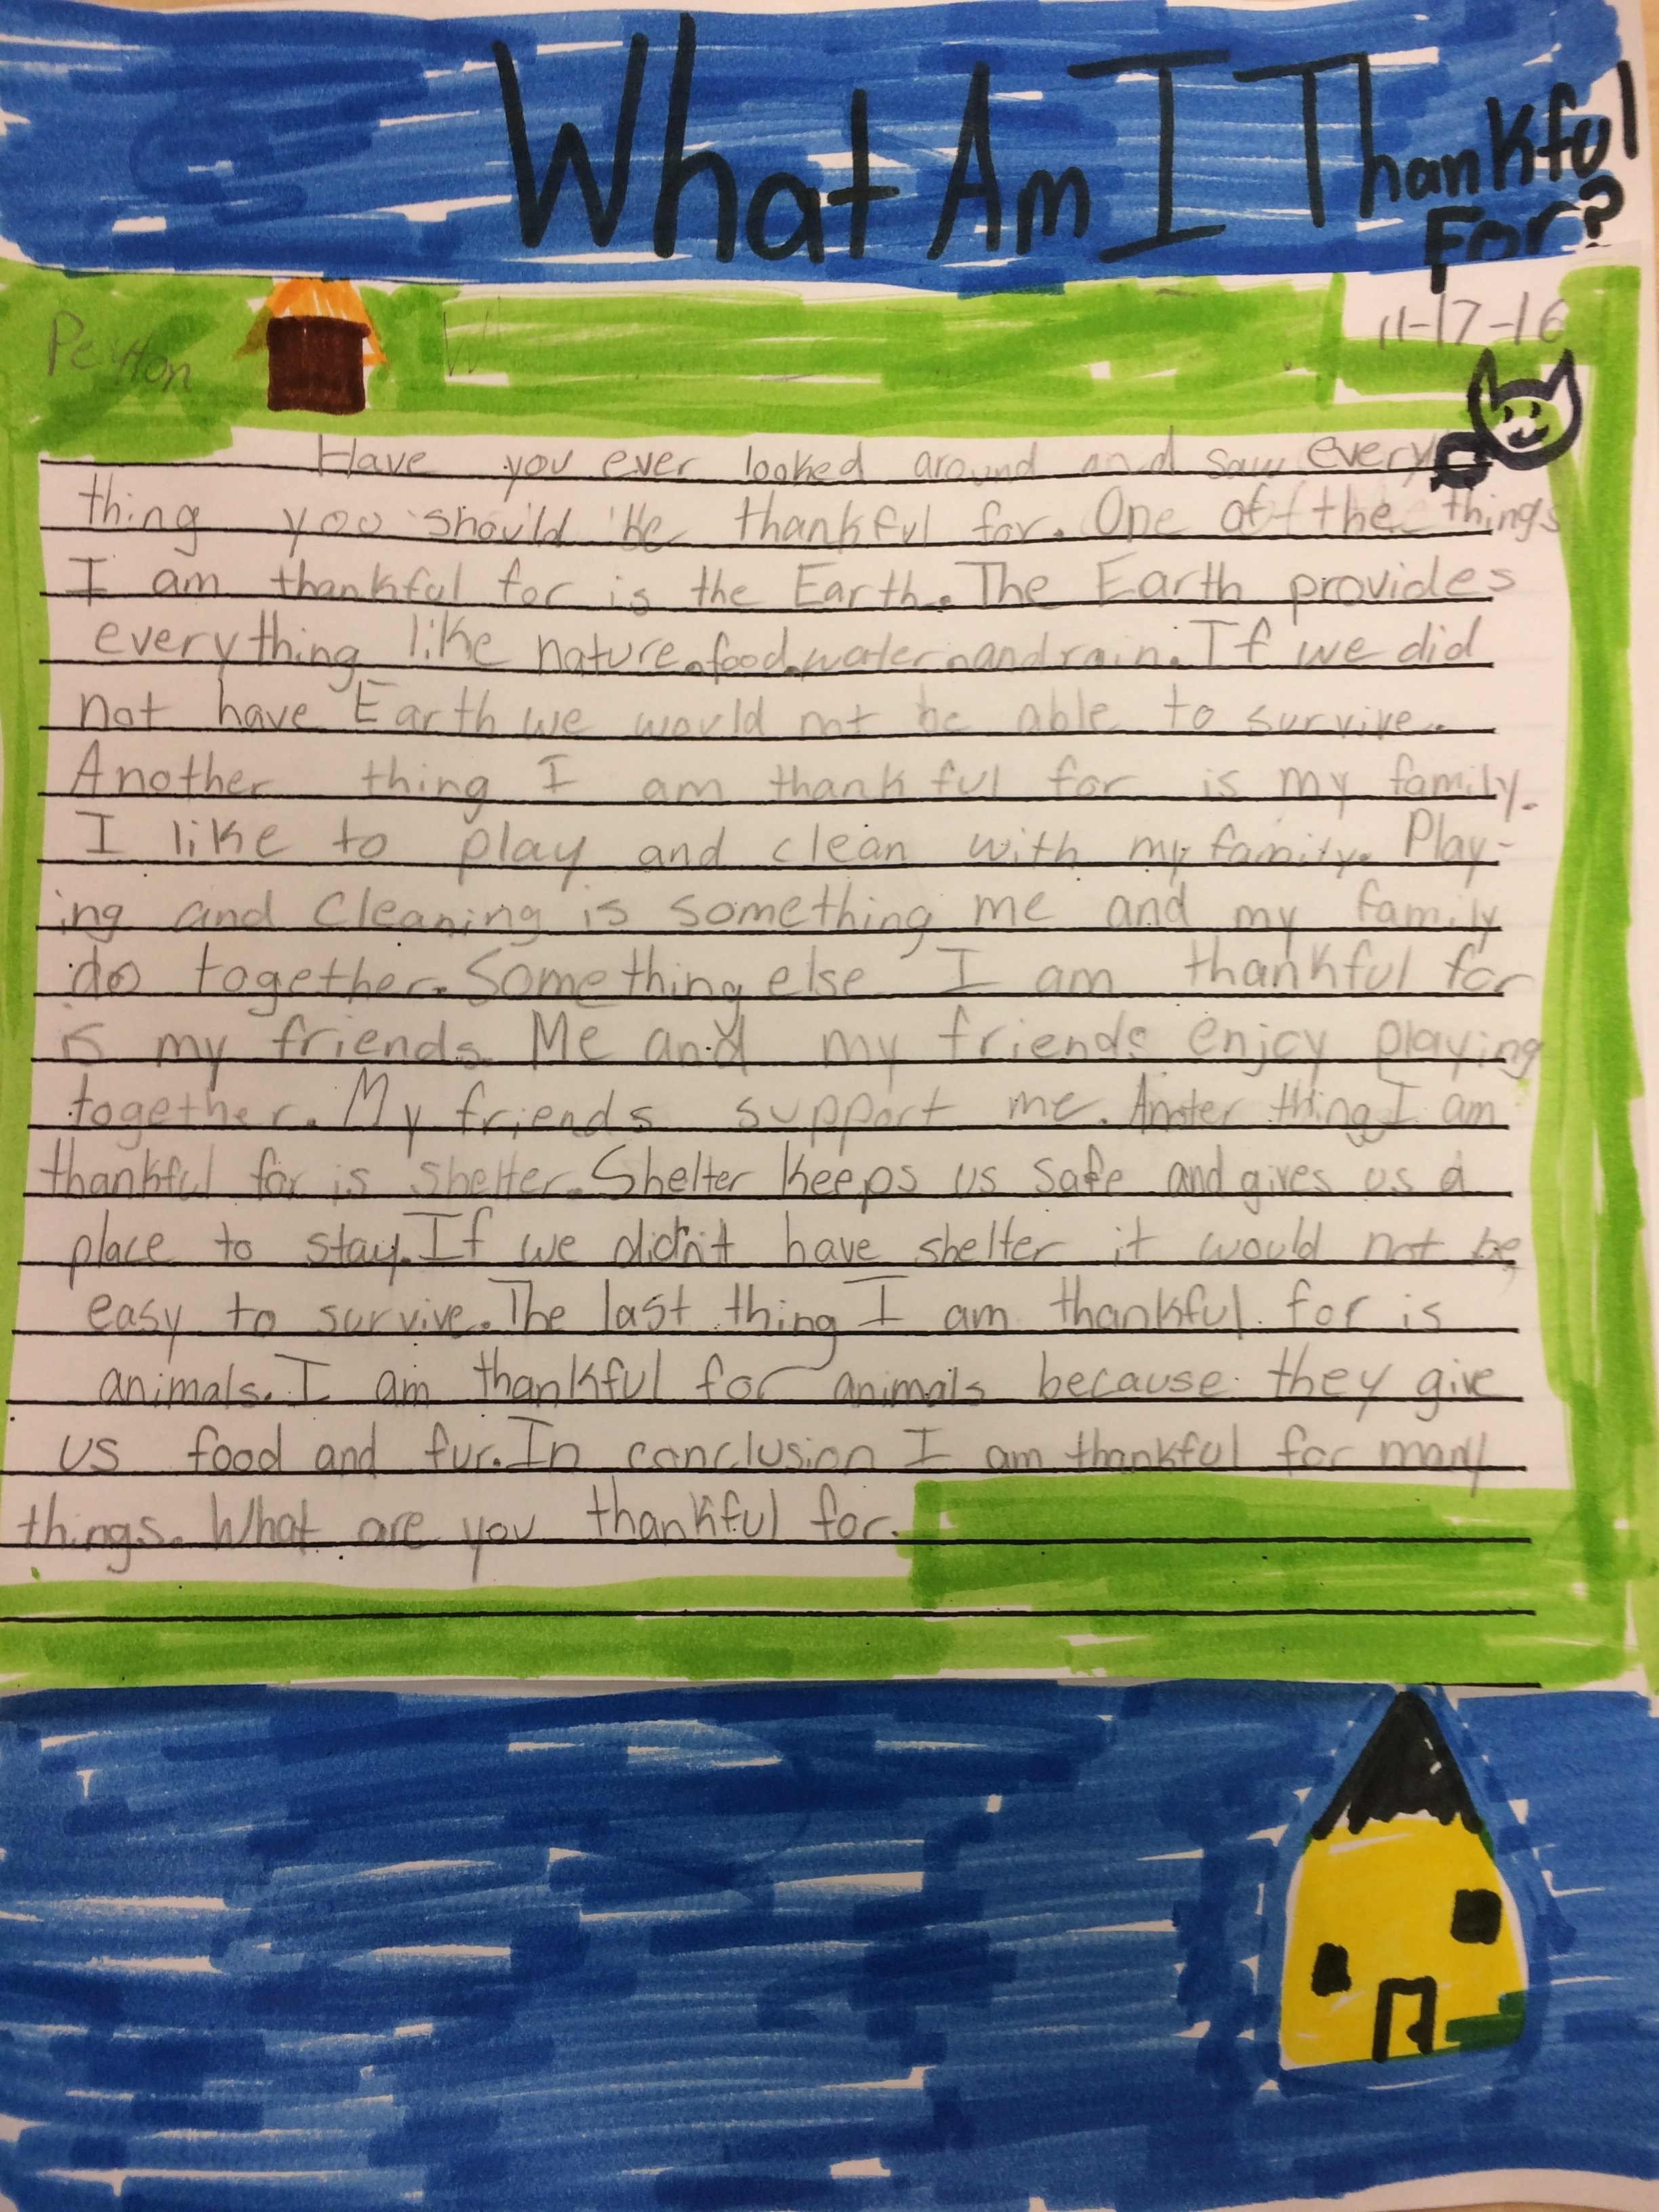 What Am I Thankful
For?
Peyton W
11-17-16
Have you ever looked around and saw every
thing you should be thankful for. One of the things
I am thankful for is the Earth. The Earth provides
everything like nature,food,water,and rain. If we did
not have Earth we would not be able to survive.
Another thing I am thankful for is my family.
I like to play and clean with my family. Play-
ing and cleaning is something me and my family
do together. Something else I am thankful for
is my friends. Me and my friends enjoy playing
together. My friends support me. Anoter thing I am
thankful for is shelter. Shelter keeps us safe and gives us a
place to stay. If we didn't have shelter it would not be
easy to survive. The last thing I am thankful for is
animals. I am thankful for animals because they give
us food and fur. In conclusion I am thankful for many
things. What are you thankful for.